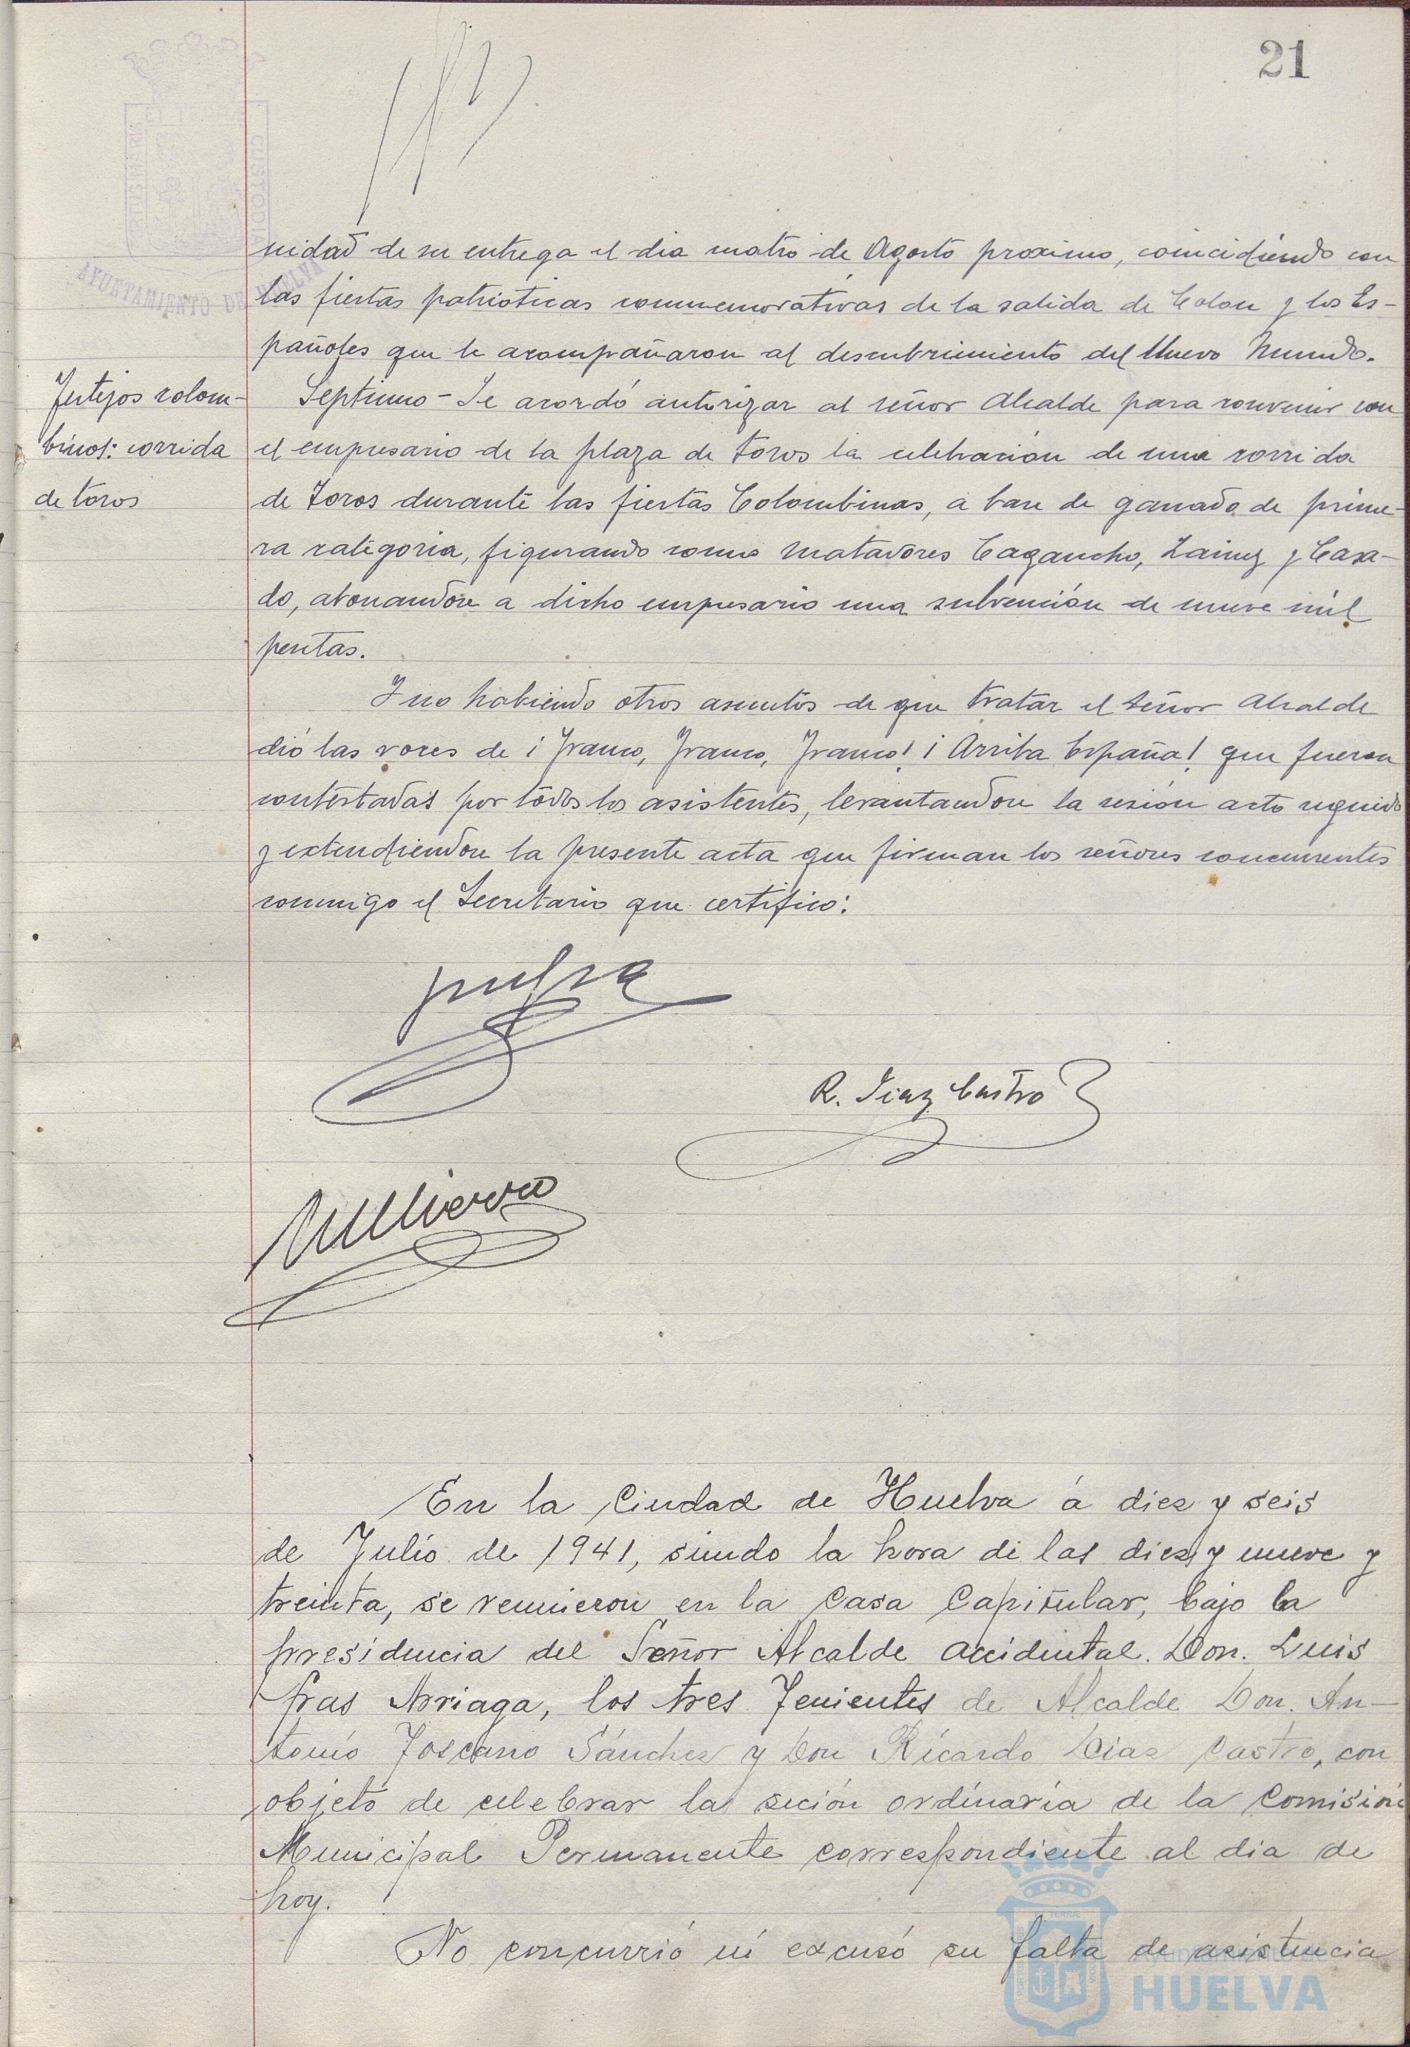 21
AYUNTAMIENTO DE HUELVA
CUSTODIA
nidad de su entrega el dia cuatro de Agosto proximo, coincidiendo con
las fiestas patrioticas conmemorativas de la salida de Colon y los Es-
pañoles que le acompañaron al descubrimiento del Nuevo Mundo.
Festejos colom-
binos: corrida
de toros
Septimo - Se acordó autorizar al señor Alcalde para convenir con
el empresario de la plaza de toros la celebración de una corrida
de toros durante las fiestas Colombinas, a base de ganado de prime-
ra categoria, figurando como matadores Cagancho, Lainez y Casa-
do, abonandose a dicho empresario una subvención de nueve mil
pesetas.
Y no habiendo otros asuntos de que tratar el señor Alcalde
dió las voces de ¡Franco, Franco, Franco! ¡Arriba España! que fueron
contestadas por todos los asistentes, levantandose la sesión acto seguido
y extendiendose la presente acta que firman los señores concurrentes
conmigo el Secretario que certifico:
R. Diaz Castro
En la Ciudad de Huelva á diez y seis
de Julio de 1941, siendo la hora de las diez y nueve y
treinta, se reunieron en la Casa Capitular, bajo la
presidencia del Señor Alcalde accidental Don Luis
Fras Arriaga, los tres Tenientes de Alcalde Don An-
tonio Toscano Sánchez y Don Ricardo Diaz Castro, con
objeto de celebrar la seción ordinaria de la Comisión
Municipal Permanente correspondiente al dia de
hoy.
No concurrió ni excusó su falta de asistencia
Ayuntamiento de
HUELVA